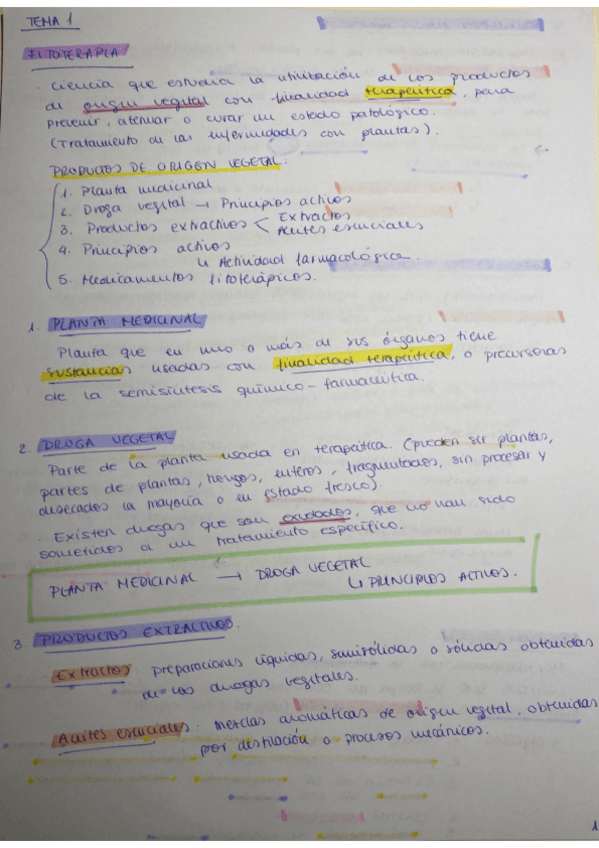 TEMA 1
FITOTERAPIA
· Ciencia que estudia la utilización de los productos
de origen vegetal con finalidad terapéutica, para
prevenir, atenuar o curar un estado patológico.
(Tratamiento de las enfermedades con plantas).
PRODUCTOS DE ORIGEN VEGETAL:
1. Planta medicinal
2. Droga vegetal → Principios activos
3. Productos extractivos < Extractos
Aceites esenciales
4. Principios activos
↳ Actividad farmacológica.
5. Medicamentos fitoterápicos.
1. PLANTA MEDICINAL
Planta que en uno o más de sus órganos tiene
sustancias usadas con finalidad terapéutica, o precursoras
de la semisíntesis químico-farmacéutica.
2. DROGA VEGETAL
Parte de la planta usada en terapéutica. (pueden ser plantas,
partes de plantas, hongos, enteros, fragmentados, sin procesar y
desecados la mayoría o en estado fresco).
· Existen drogas que son exudados, que no han sido
sometidos a un tratamiento específico.
PLANTA MEDICINAL → DROGA VEGETAL
↳ PRINCIPIOS ACTIVOS.
3. PRODUCTOS EXTRACTIVOS.
Extractos: preparaciones líquidas, semisólidas o sólidas obtenidas
de las drogas vegetales.
Aceites esenciales: mezclas aromáticas de origen vegetal, obtenidas
por destilación o procesos mecánicos.
1